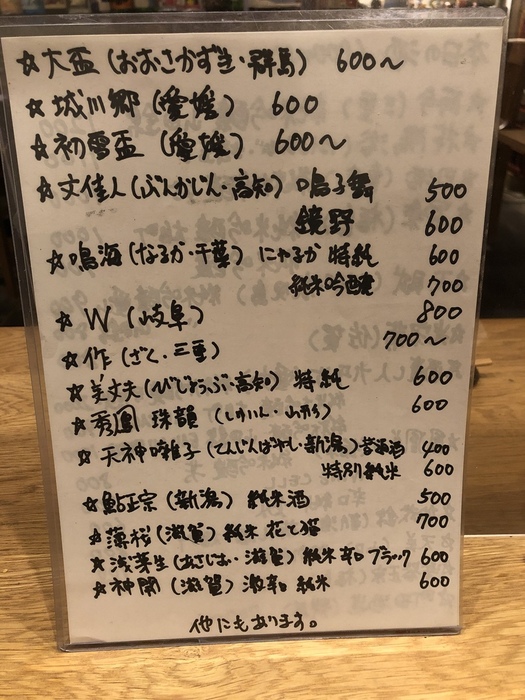 ☆大盃(おおさかずき・群馬) 600〜
☆城川郷(愛媛) 600
☆初雪盃(愛媛) 600〜
☆文佳人(ぶんかじん・高知) 鳴子舞 500
鏡野 600
☆鳴海(なるか・千葉) にゃるか 特純 600
純米吟醸 700
☆W(岐阜) 800
☆作(ざく・三重) 700〜
☆美丈夫(びじょうぶ・高知) 特純 600
☆秀鳳 珠韻(しゅいん・山形) 600
☆天神囃子(てんじんばやし・新潟) 普通酒 400
特別純米 600
☆鮎正宗(新潟) 純米酒 500
☆薄桜(滋賀) 純米 花と猫 700
☆浅茅生(あさじお・滋賀) 純米辛口 ブラック 600
☆神開(滋賀) 激辛口 純米 600
他にもあります。